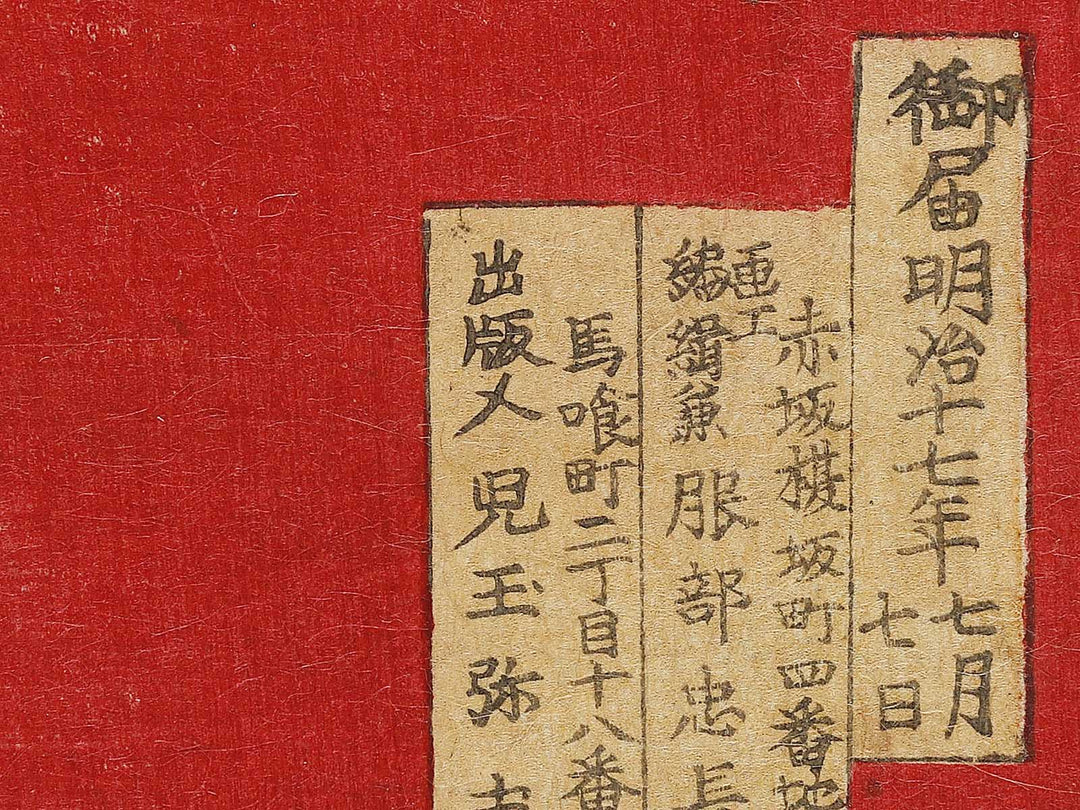 御届明治十七年七月
七日
赤坂榿坂町四番地
画工
編緝兼 服部忠長
馬喰町二丁目十八番
出版人 児玉弥